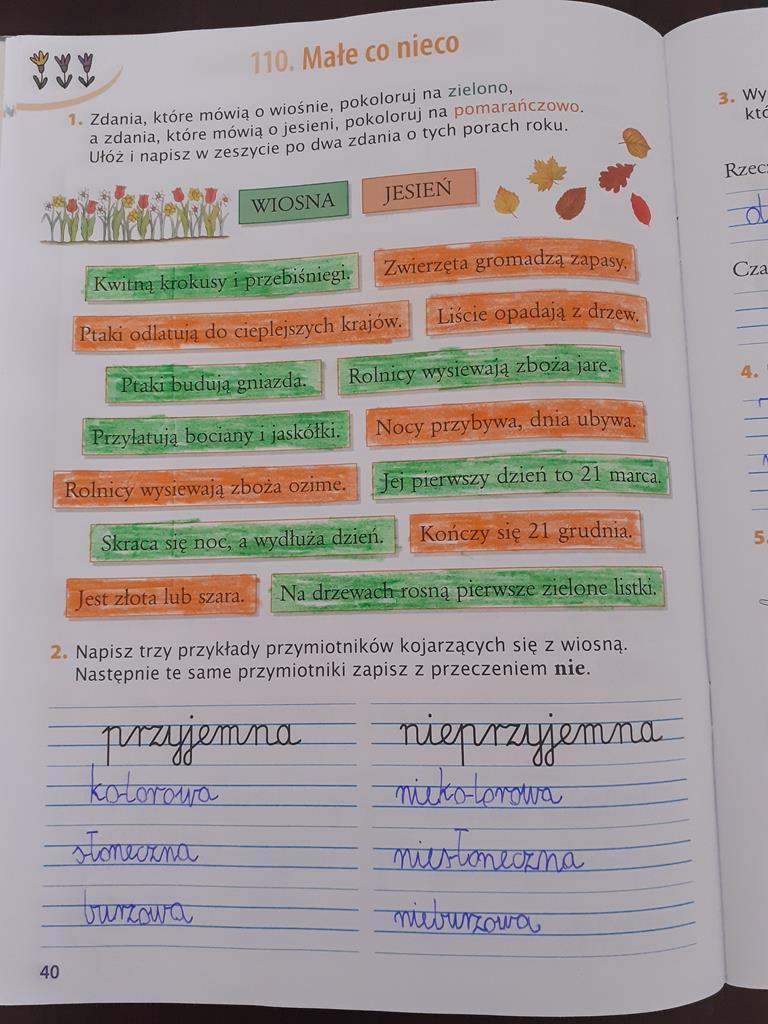 110. Małe co nieco
1. Zdania, które mówią o wiośnie, pokoloruj na zielono,
a zdania, które mówią o jesieni, pokoloruj na pomarańczowo.
Ułóż i napisz w zeszycie po dwa zdania o tych porach roku.
WIOSNA JESIEŃ
Kwitną krokusy i przebiśniegi. Zwierzęta gromadzą zapasy.
Ptaki odlatują do cieplejszych krajów. Liście opadają z drzew.
Ptaki budują gniazda. Rolnicy wysiewają zboża jare.
Przylatują bociany i jaskółki. Nocy przybywa, dnia ubywa.
Rolnicy wysiewają zboża ozime. Jej pierwszy dzień to 21 marca.
Skraca się noc, a wydłuża dzień. Kończy się 21 grudnia.
Jest złota lub szara. Na drzewach rosną pierwsze zielone listki.
2. Napisz trzy przykłady przymiotników kojarzących się z wiosną.
Następnie te same przymiotniki zapisz z przeczeniem nie.
przyjemna nieprzyjemna
kolorowa niekolorowa
słoneczna niesłoneczna
burzowa nieburzowa
40
3. Wy
któ
Rzecz
d
Cza
4.
5.